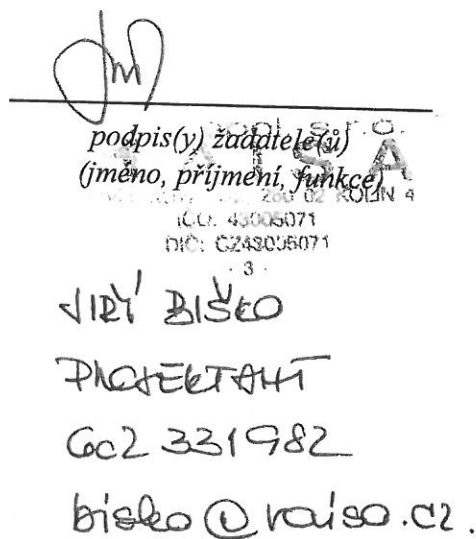 podpis(y) žadatele(ů)
(jméno, příjmení, funkce)
280 02 KOLÍN 4
IČO: 43005071
DIČ: CZ43005071
- 3 -
JIŘÍ BIŠKO
PROJEKTANT
602 331982
bisko@raiso.cz.